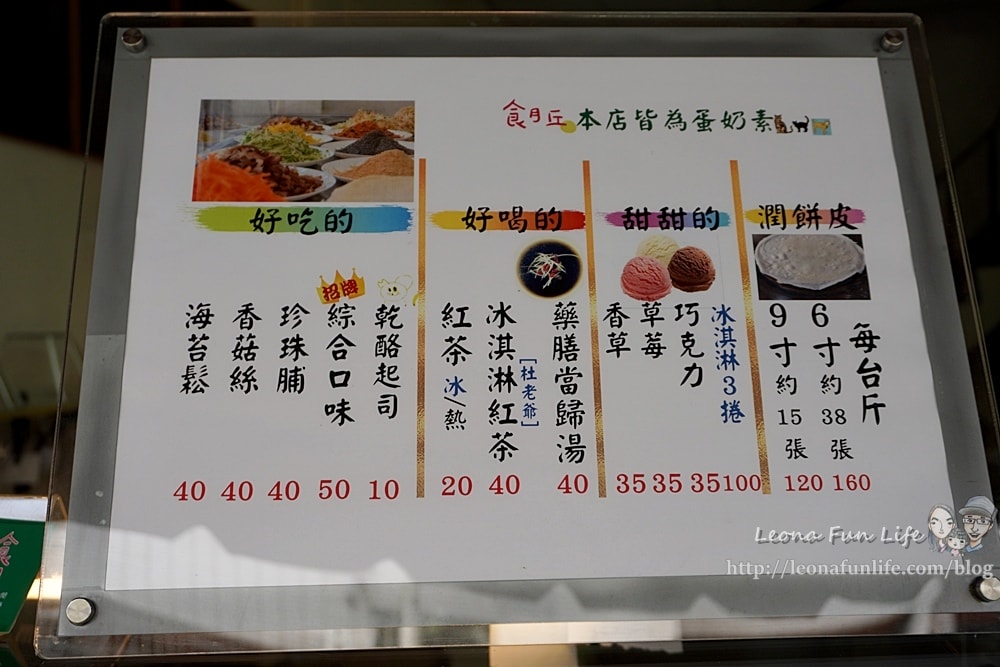 食月丘 本店皆為蛋奶素
好吃的
招牌
海苔鬆 40
香菇絲 40
珍珠脯 40
綜合口味 50
乾酪起司 10
好喝的
紅茶 冰/熱 20
冰淇淋紅茶 [杜老爺] 40
藥膳當歸湯 40
甜甜的
香草 35
草莓 35
巧克力 35
冰淇淋3捲 100
潤餅皮
9寸約15張 120
6寸約38張 160
每台斤
Leona Fun Life
http://leonafunlife.com/blog